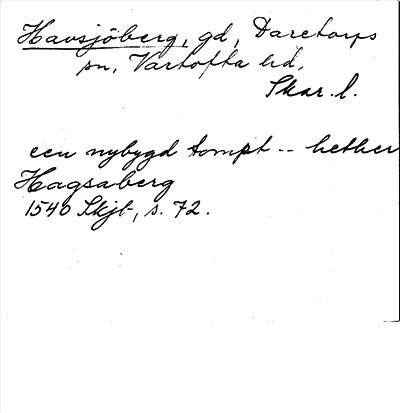 Havsjöberg, gd, Daretorps
sn, Vartofta hd,
Skar. l.
een nybygd tompt -- hether
Hagsaberg
1540 Skjb, s. 72.